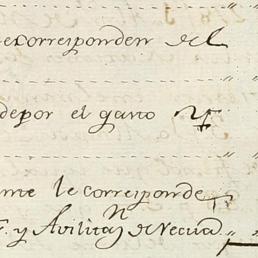 e corresponden del
depor el gano
me le corresponde
F. y Avilitan de Vecua.